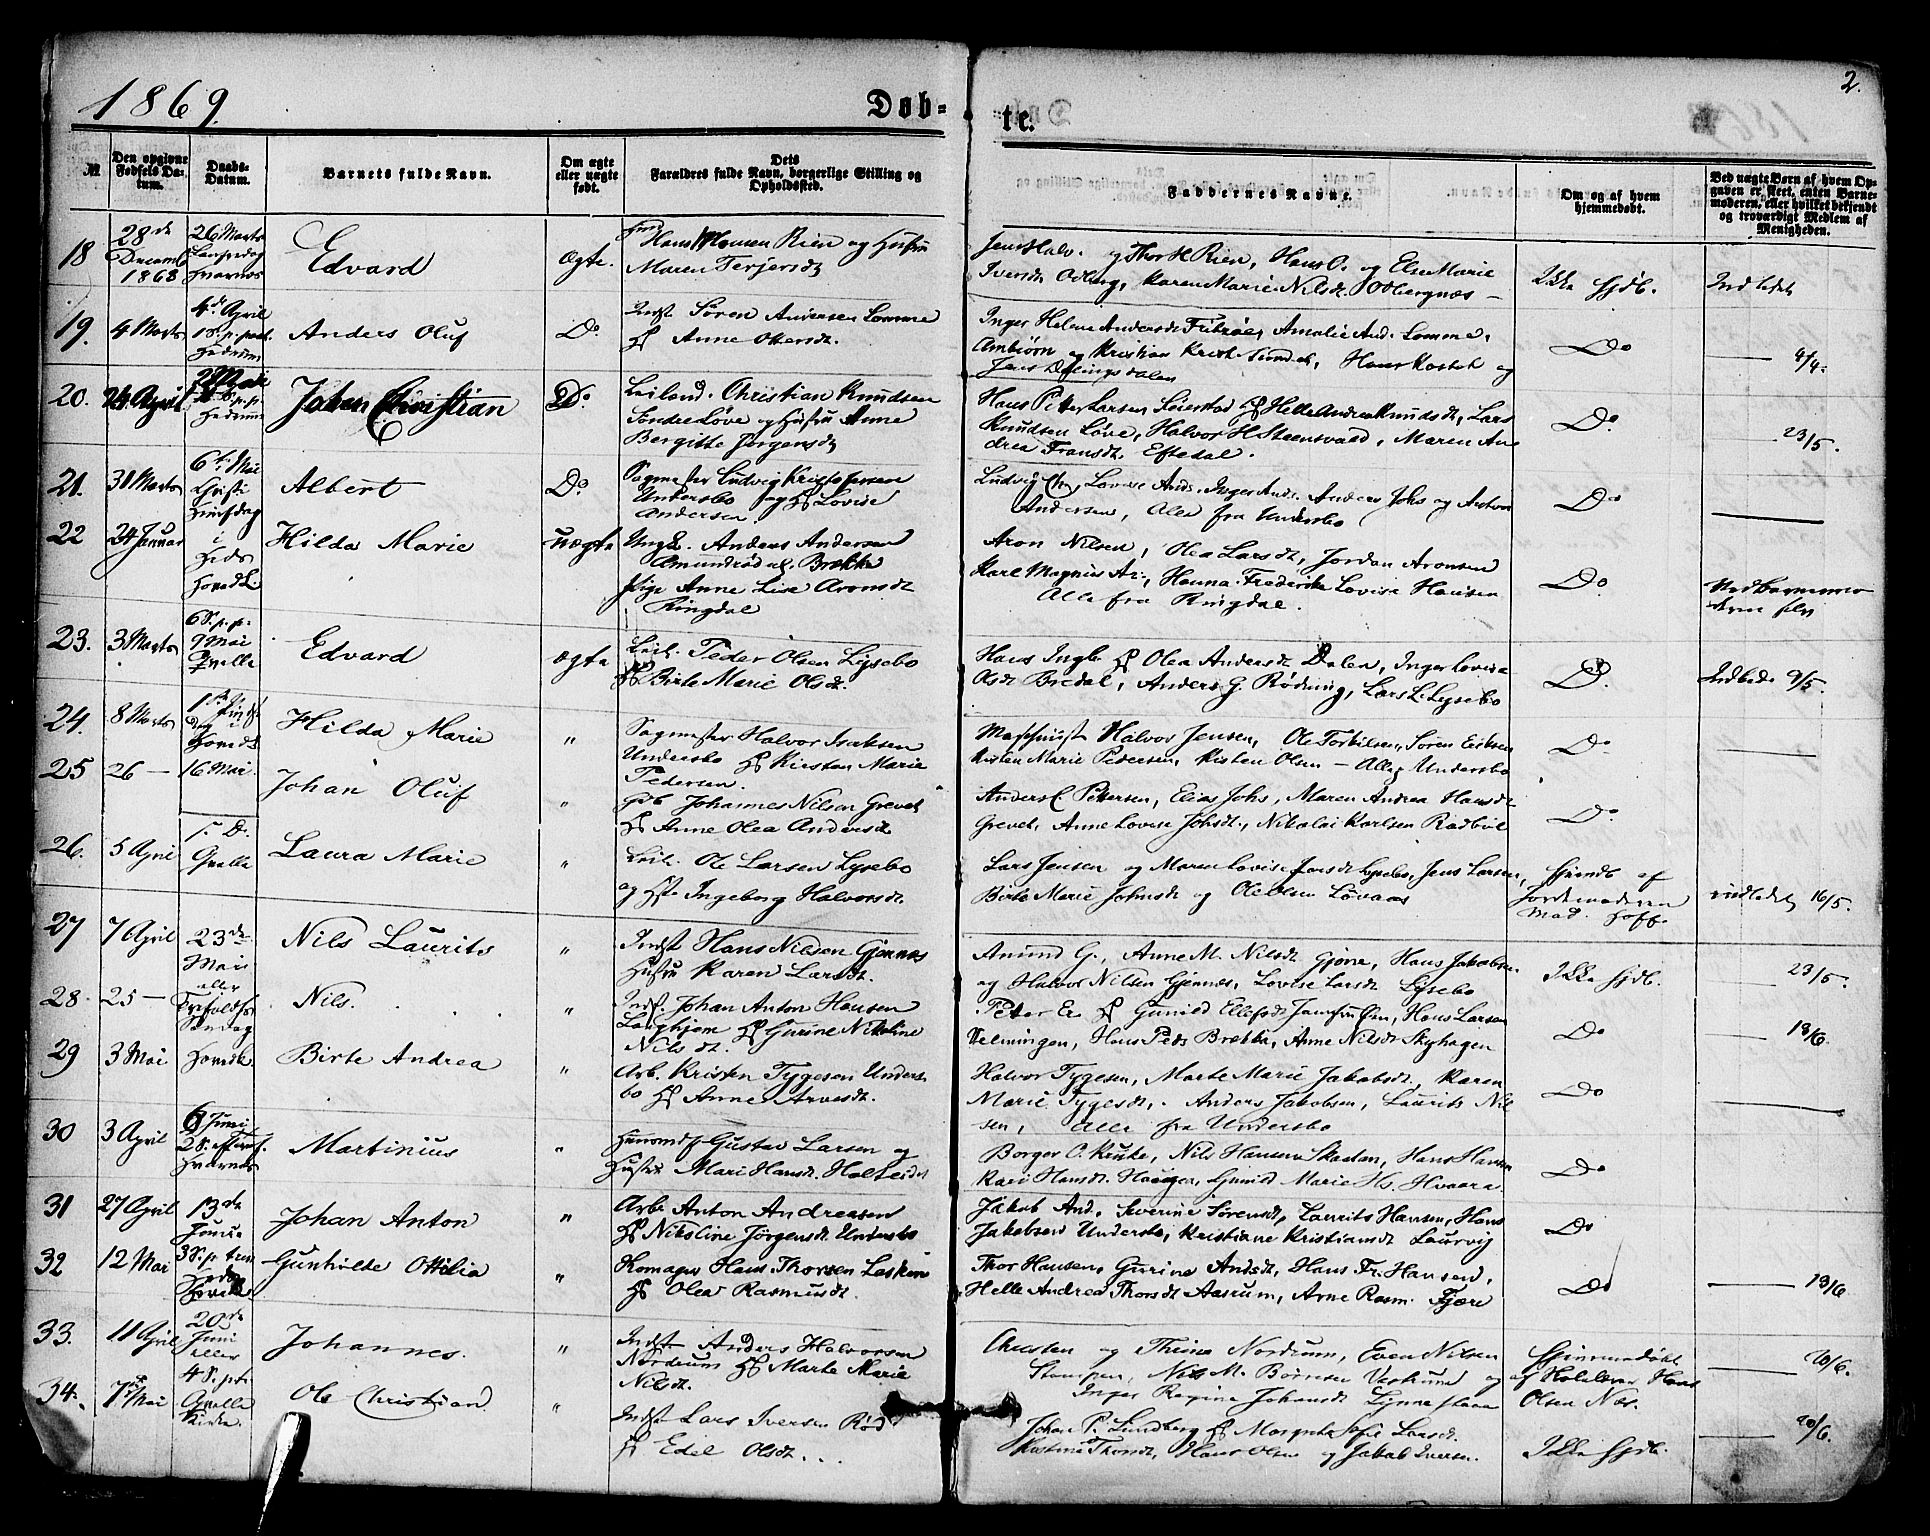 1869.
Døb=
te.
2.
№
Den opgivne Fødsels Datum.
Daabs-Datum.
Barnets fulde Navn.
Om ægte eller uægte født.
Dets Forældres fulde Navn, borgerlige Stilling og Opholdssted.
Faddernes Navne.
Om og af hvem hjemmedøbt.
Ved uægte Børn af hvem Opgaven er skeet, enten Barnemoderen, eller hvilket bekjendt og troværdigt Medlem af Menigheden.
18
28de Decemb 1868
26 Marts Langfredag Hvarnes
Edvard
ægte
Hans Hansen Rien og Hustru
Maren Terjersdt
Jens Halv. og Thor H. Rien, Hans O. og Else Marie
Iversdt Odberg, Karen Marie Nilsdt Odbergnæs –
Ikke hjdb.
Indledet
19.
4 Marts
4de April
Hedrum
Anders Oluf
Do
Indst Søren Andersen Lomme
Hf Anne Ottersdt.
Inger Helene Andersdt Fritzøe, Amalie And. Lomme,
Ambiørn og Kristian Krist. Hans Kostok og
Jens Dølingsdalen
Do
4/4.
20.
24 April
Hedrum
Johan Christian
Do
Leilend. Christian Knudsen
Søndre Løve og Hustru Anne
Bergitte Jørgensdt
Hans Petter Larsen Seierstad Hf Helle Andrea Knudsdt, Lars
Knudsen Løve, Halvor H. Steensvald, Maren An
drea Fransdt. Eftedal.
Do
23/5.
21.
31 Marts
6te Mai Christi Himfdag
Albert
Do
Sagmester Ludvig Kristofersen
Undersbo og Hf Lovise
Andersen.
Ludvig Chr, Lovise Ands. Inger Ands. Anders Johs og Anton
Andersen, Alle fra Undersbo
Do
22
24 Januar
i Heds Hovedk.
Hilda Marie
uægte
Ungk. Anders Andersen
Amundrød Brekke
Pige Anne Lise Aronsdt
Ringdal
Aron Nilsen, Olea Larsdt, Jordan Aronsen
Karl Magnus Ar., Hanna Frederikke Lovise Hansen
Alle fra Ringdal.
Do
Ved Barnemo
deren selv
23.
3 Marts
6 S. p. p. 9 Mai Qvelle
Edvard
ægte
Leil. Peder Olsen Lysebo
Hf Birte Marie Olsdt.
Hans Ingb Hf Olea Andersdt Dalen, Inger Lovise
Olsdt Bredal, Anders G. Rødning, Lars L. Lysebo
Do.
Indlede 9/5.
24.
8 Marts
1ste Pindsedag i Hovedk
Hilda Marie
"
Sagmester Halvor Isaksen
Undersbo Hf Kirsten Marie
Pedersen.
Halvor Jensen, Ole Torkilsen, Søren Eriksen
Kisten Marie Pedersen, Kisten Olsen – Alle Undersbo
Do
25
26 –
16 Mai.
Johan Oluf
"
Gdb Johannes Nilsen Grevet
Hf Anne Olea Andersdt
Anders C. Pettersen, Elias Johs, Maren Andrea Hansdt
Grevet, Anne Lovise Johsdt., Nikolai Karlsen Rødbøl
Do.
26.
5 April
s. D. Qvelle
Laura Marie
"
Leil. Ole Larsen Lysebo
og Hst Ingeborg Halvorsdt.
Lars Jensen og Maren Lovise Larsdt Lysebo, Jens Larsen,
Birte Marie Johnsdt og Ole Olsen Løvaas
Hjemdb af
Jordemoderen
Mad. Hoff.
indledet 16/5.
27
7 April
23de Mai eller
Nils Laurits
"
Indst Hans Nilsen Gjønnes
Hustru Karen Larsdt.
Amund G., Anne M. Nilsdt Gjøne, Hans Jakobsen
og Halvor Nilsen Gjønnes, Lovise Larsdt Lysebo
Ikke hjdb.
23/5.
28.
25 –
Trefoldhs Søndag
Nils.
"
Inds. Johan Anton Hansen
Langhjem Hf Gurine Nikoline
Nilsdt.
Peter E. Hf Gunild Ellefsdt Hans Larsen
Velmingen, Hans Peds Brekke, Anne Nilsdt Skyhagen
Do
13/6.
29
3 Mai
Hovedk.
Birte Andrea
"
Arb. Kristen Tygesen Unders
bo Hf Anne Arvesdt.
Halvor Tygesen, Marte Marie Jakobsdt. Karen
Marie Tygesdt., Anders Jakobsen, Laurits Nil
sen, Alle fra Undersbo
Do
30
3 April
6 Juni
Hvarnes
Martinius
"
Husmd Gustav Larsen og
Hustru Mari Hansdt. Holteidet
Borger O. Kruke, Nils Hansen Skadan, Hans Hansen
Kari Hansdt. Haugen, Gunild Marie Hs. Hvaara
Do
31
27 April
13de Juni
Johan Anton
"
Arb. Anton Andreasen
Hf Nikoline Jørgensdt. Undersbo
Jakob And., Severine Sørensdt., Laurits Hansen, Hans
Jakobsen Undersbo, Kristiane Kristiansdt Laurvig
Do
32
12 Mai
3 S. p. trin Hovedk
Gunhilde Ottilia
"
Skomager Hans Thorsen Leskin
Hf Olea Rasmusdt.
Thor Hansen, Gurine Andsdt, Hans Fr. Hansen,
Helle Andrea Thorsdt Aasrum, Arne Rasm. Fjære
Do
13/6
33.
11 April
20de Juni eller
Johannes.
"
Indst Anders Halvorsen
Nordrum Hf Marte Marie
Nilsdt.
Christen og Thrine Nordrum, Even Nilsen
Nils M. Børresen og
Inger Regine Johansdt.
Hjemmedøbt
af Kirkesv Hans
Olsen Næs.
20/6.
34.
7de Mai
4 S. p. tr. Qvelle Kirke
Ole Christian
"
Indst Lars Iversen Rød
Hf Edel Olsdt.
Johan P. Lundberg Hf Margrete Sofie Larsdt.
Kastine Thorsdt, Hans Olsen og Jakob Iversen.
Ikke hjdb.
20/6.